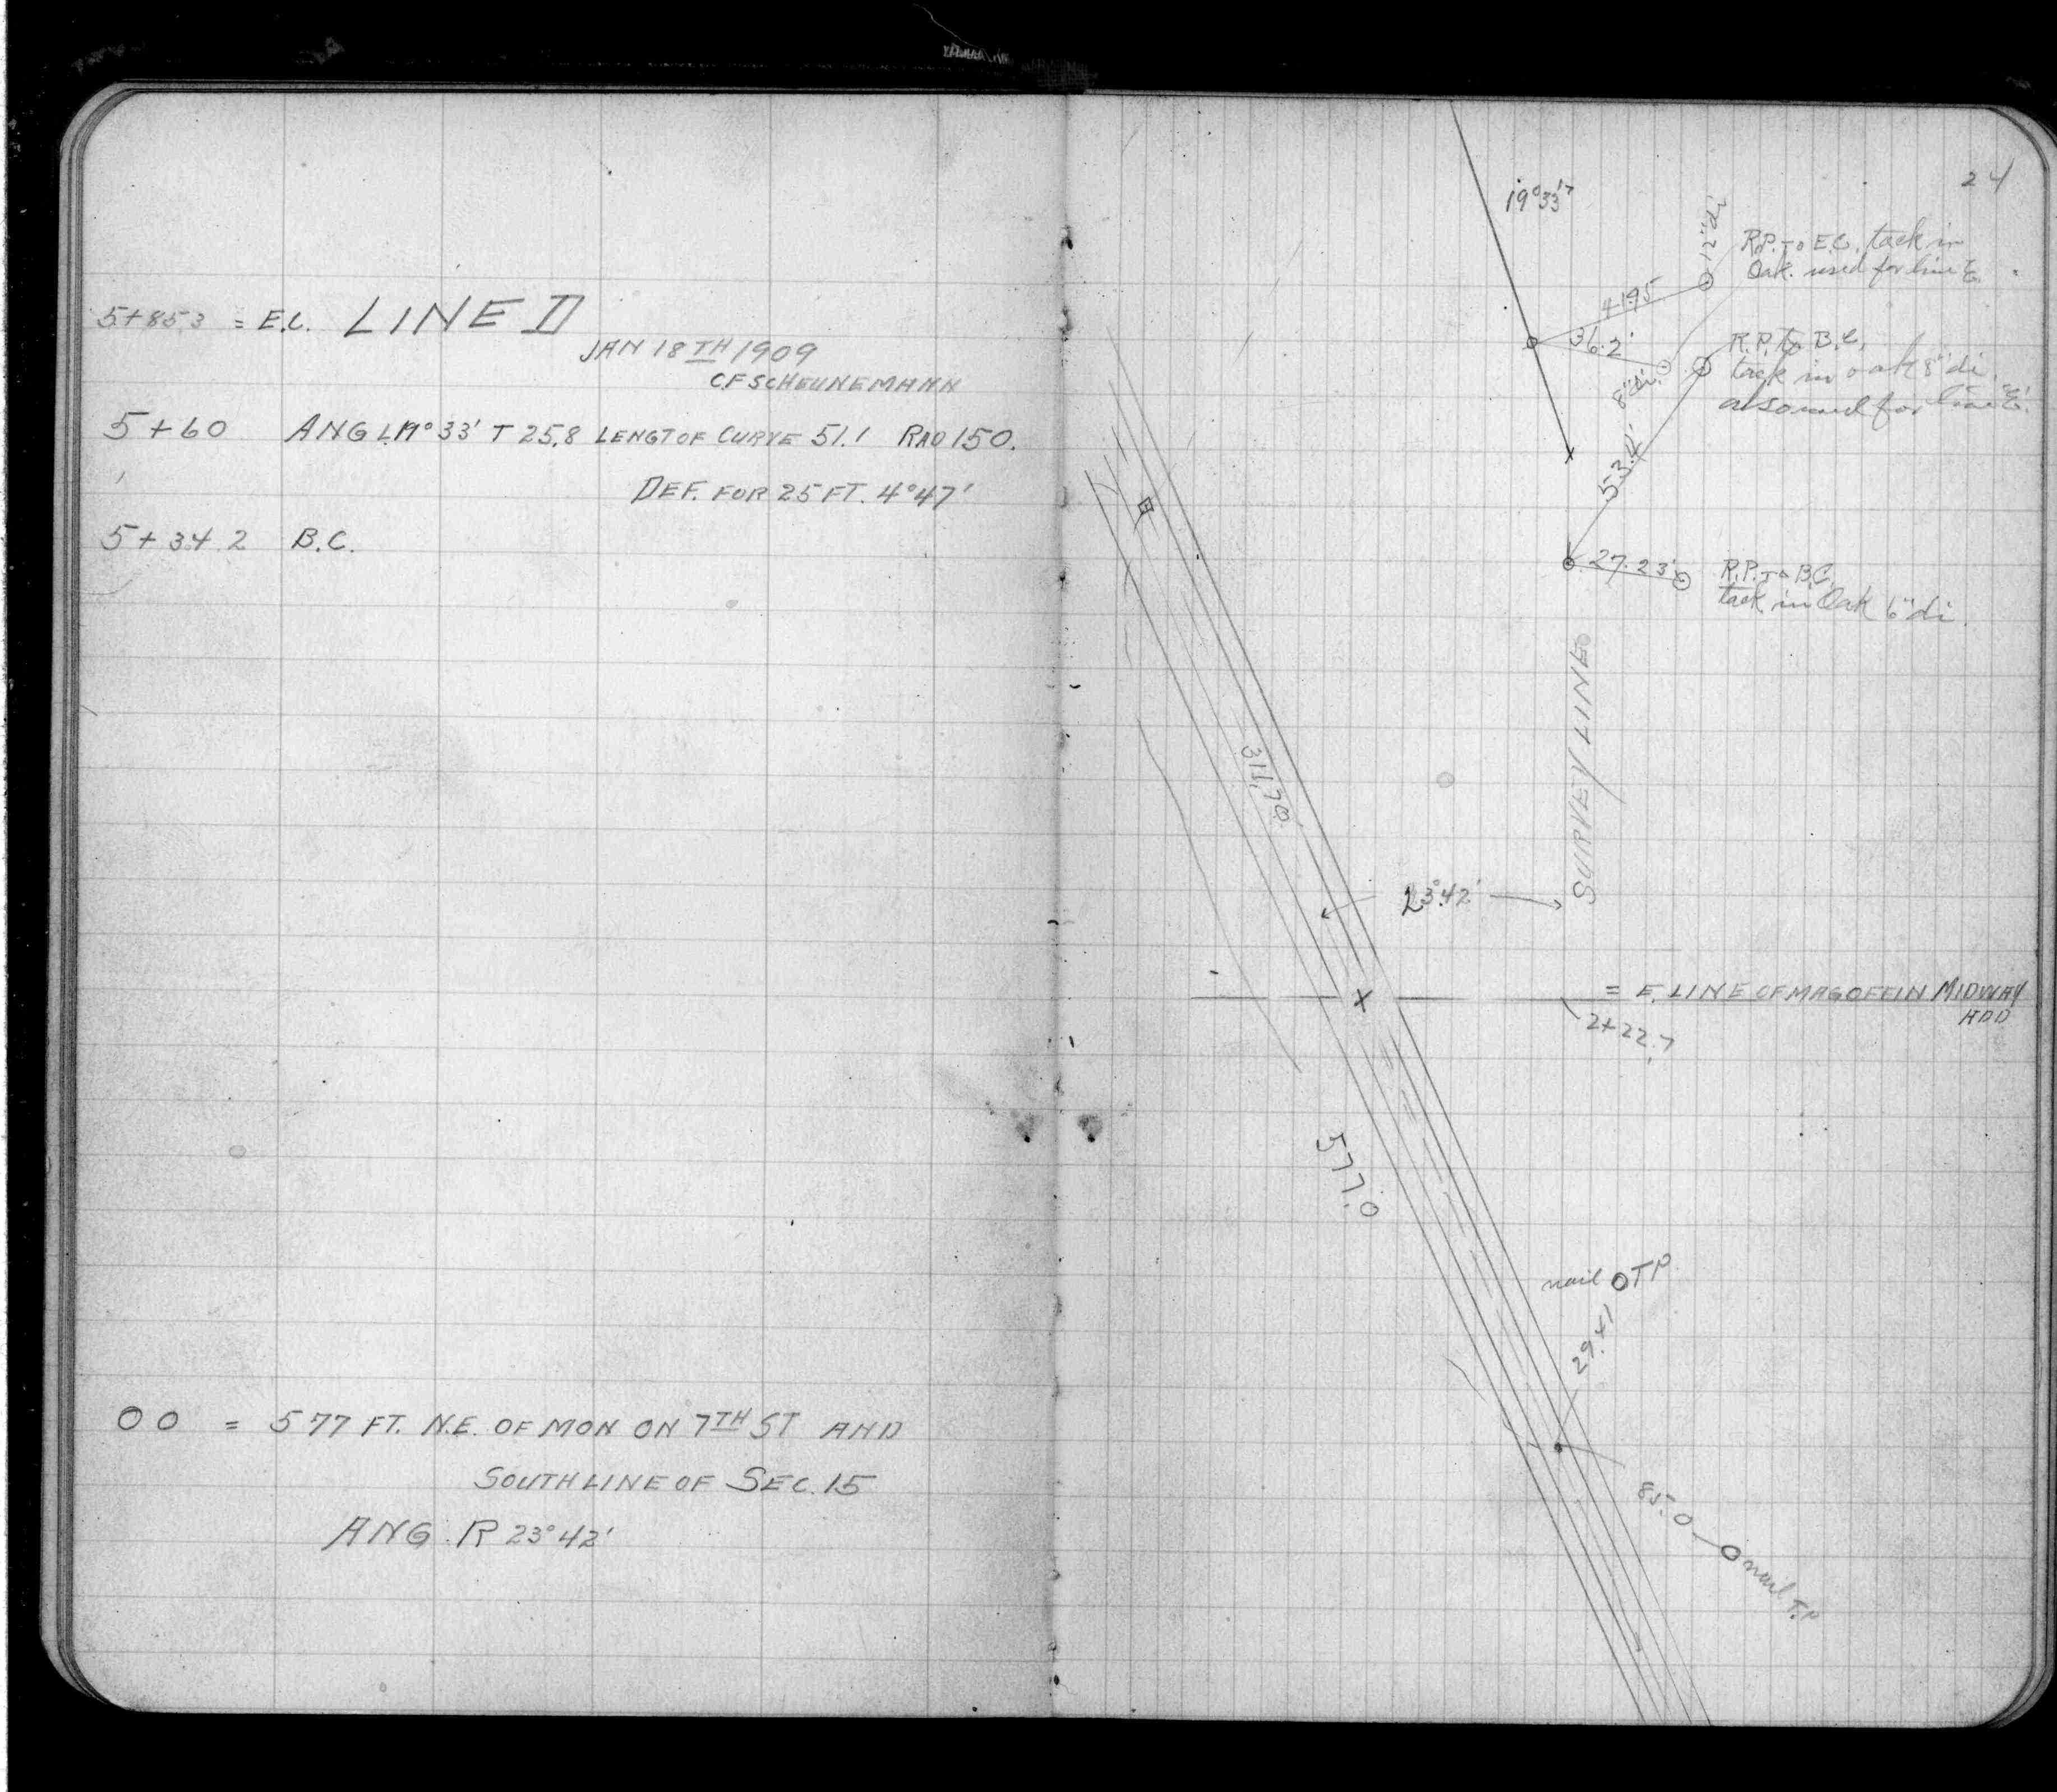 5+85 3 = E.C. LINE D
JAN 18TH 1909
C.F SCHEUNEMANN
5+60 ANG L 19°33' T 25.8 LENGT OF CURVE 51.1 RAD 150.
DEF. FOR 25 FT. 4°47'
5+34.2 B.C.
00 = 577 FT. N.E. OF MON ON 7TH ST AND
SOUTH LINE OF SEC. 15
ANG. R 23°42'
24
19°33'
12" di
R.P. To E.C. tack in
Oak. used for line E.
41.95
36.2'
8" di.
R.P. to B.C.
tack in oak 8" di.
also used for line "E".
53.4'
27.23'
R.P. To B.C.
tack in Oak 6" di.
SURVEY LINE
311.78
23°42'
= E. LINE OF MAGOFFIN MIDWAY
ADD
2+22.7
577.0
nail O T P.
29.41
85.0
nail T.P